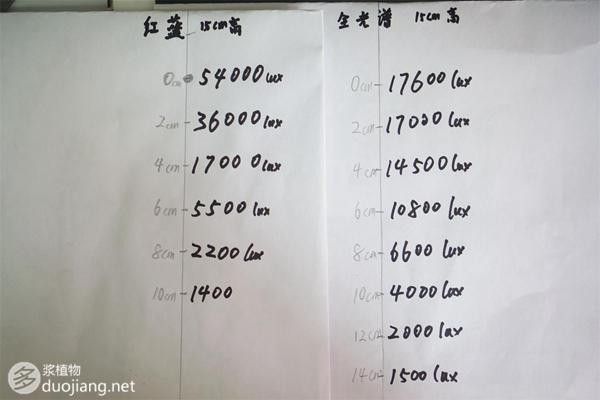 红蓝 15cm高
0cm 54000lux
2cm 36000lux
4cm 17000lux
6cm 5500lux
8cm 2200lux
10cm 1400
全光谱 15cm高
0cm 17600lux
2cm 17000lux
4cm 14500lux
6cm 10800lux
8cm 6600lux
10cm 4000lux
12cm 2000lux
14cm 1500lux
多 浆植物
duojiang.net